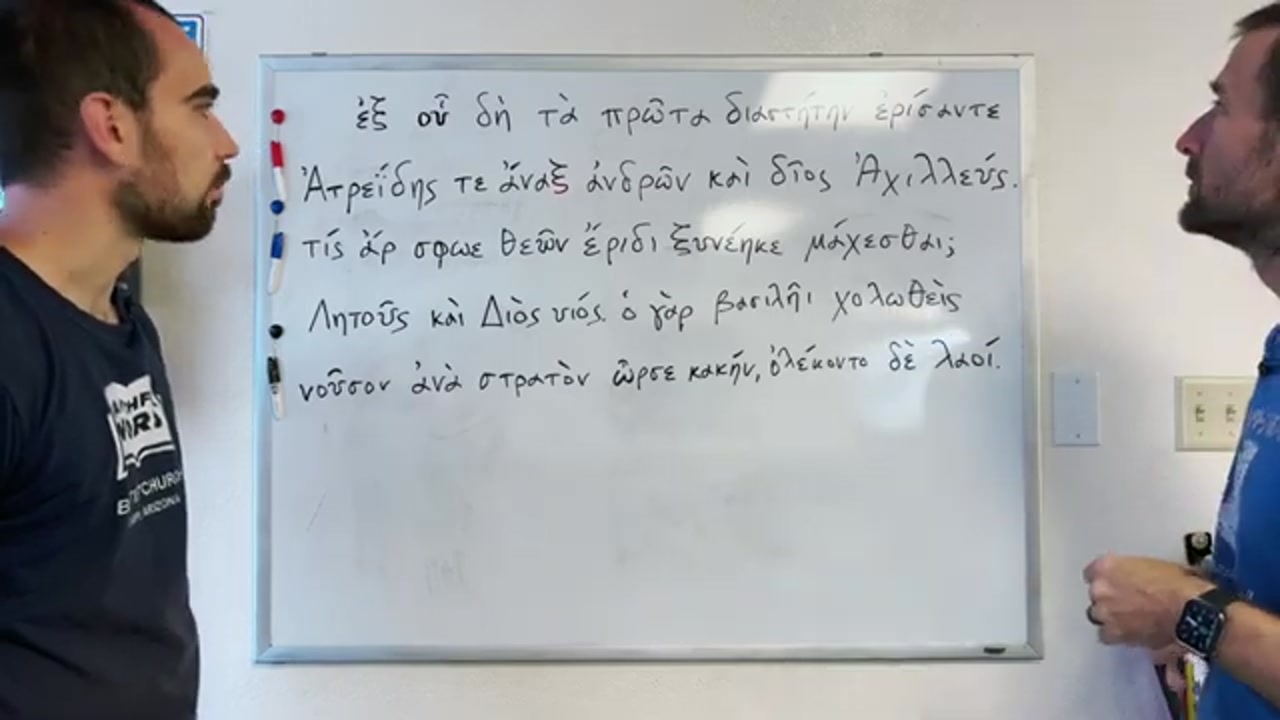 ἐξ οὗ δὴ τὰ πρῶτα διαστήτην ἐρίσαντε
Ἀτρεΐδης τε ἄναξ ἀνδρῶν καὶ δῖος Ἀχιλλεύς.
τίς ἄρ σφωε θεῶν ἔριδι ξυνέηκε μάχεσθαι;
Λητοῦς καὶ Διὸς υἱός. ὁ γὰρ βασιλῆι χολωθεὶς
νοῦσον ἀνὰ στρατὸν ὦρσε κακήν, ὀλέκοντο δὲ λαοί.